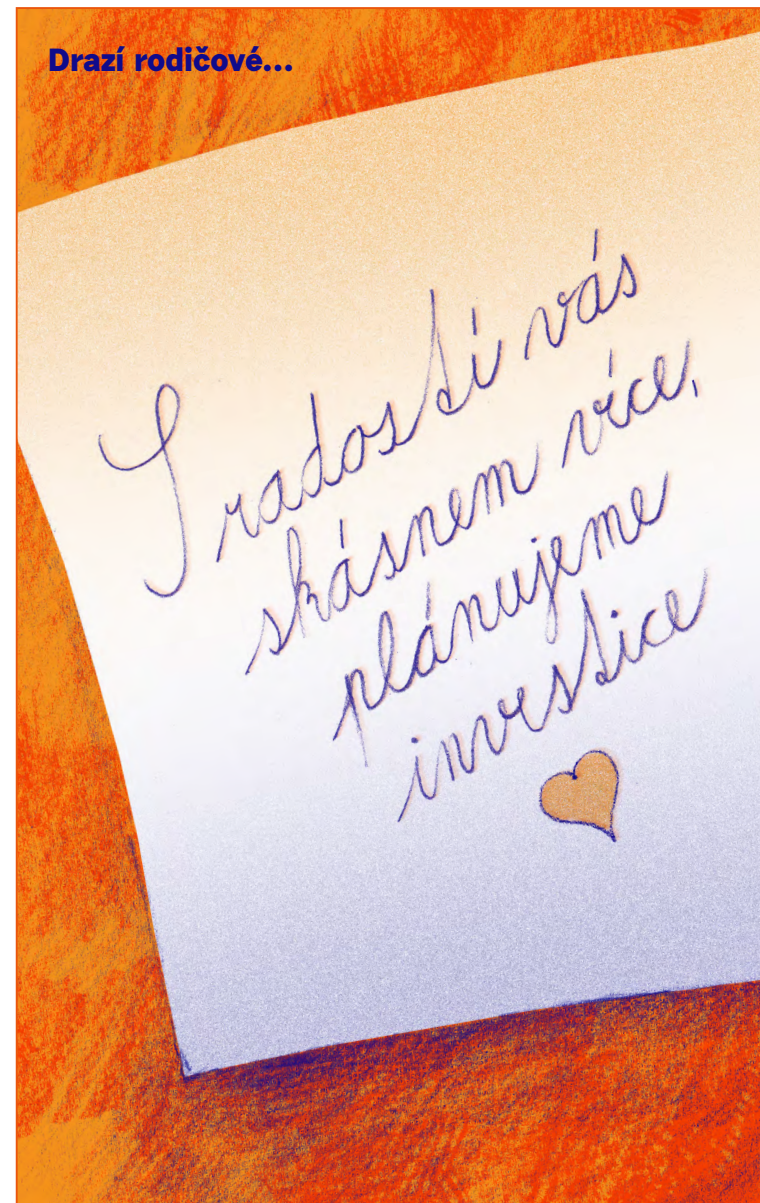 Drazí rodičové...
S radostí vás
skásnem více,
plánujeme
investice